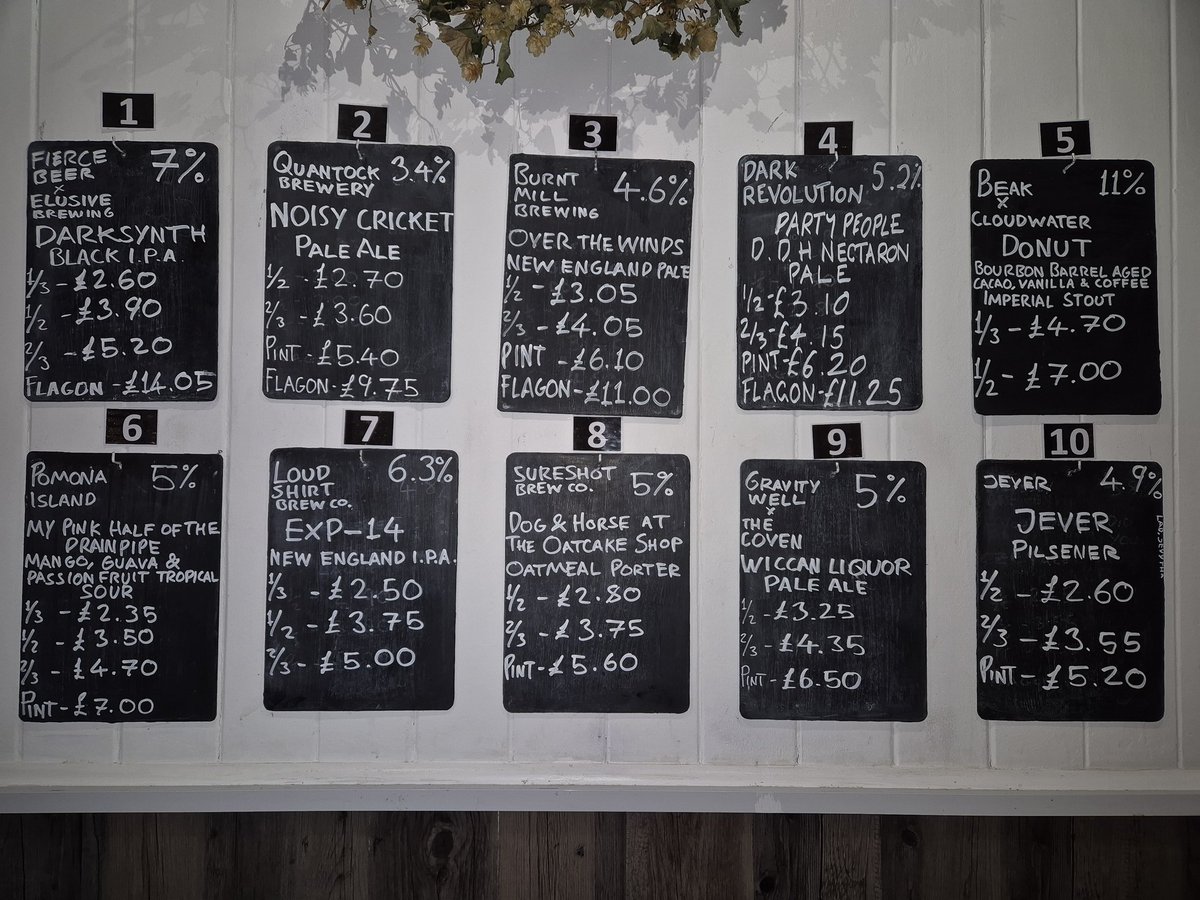 1
FIERCE BEER 7%
x
ELUSIVE BREWING
DARKSYNTH
BLACK I.P.A.
1/3 - £2.60
1/2 - £3.90
2/3 - £5.20
FLAGON - £14.05
2
QUANTOCK BREWERY 3.4%
NOISY CRICKET
PALE ALE
1/2 - £2.70
2/3 - £3.60
PINT - £5.40
FLAGON - £9.75
3
BURNT MILL BREWING 4.6%
OVER THE WINDS
NEW ENGLAND PALE
1/2 - £3.05
2/3 - £4.05
PINT - £6.10
FLAGON - £11.00
4
DARK REVOLUTION 5.2%
PARTY PEOPLE
D.D.H NECTARON
PALE
1/2 - £3.10
2/3 - £4.15
PINT - £6.20
FLAGON - £11.25
5
BEAK 11%
x
CLOUDWATER
DONUT
BOURBON BARREL AGED
CACAO, VANILLA & COFFEE
IMPERIAL STOUT
1/3 - £4.70
1/2 - £7.00
6
POMONA ISLAND 5%
MY PINK HALF OF THE
DRAINPIPE
MANGO, GUAVA &
PASSION FRUIT TROPICAL
SOUR
1/3 - £2.35
1/2 - £3.50
2/3 - £4.70
PINT - £7.00
7
LOUD SHIRT BREW CO. 6.3%
EXP-14
NEW ENGLAND I.P.A.
1/3 - £2.50
1/2 - £3.75
2/3 - £5.00
8
SURESHOT BREW CO. 5%
DOG & HORSE AT
THE OATCAKE SHOP
OATMEAL PORTER
1/2 - £2.80
2/3 - £3.75
PINT - £5.60
9
GRAVITY WELL 5%
x
THE COVEN
WICCAN LIQUOR
PALE ALE
1/2 - £3.25
2/3 - £4.35
PINT - £6.50
10
JEVER 4.9%
JEVER
PILSENER
1/2 - £2.60
2/3 - £3.55
PINT - £5.20